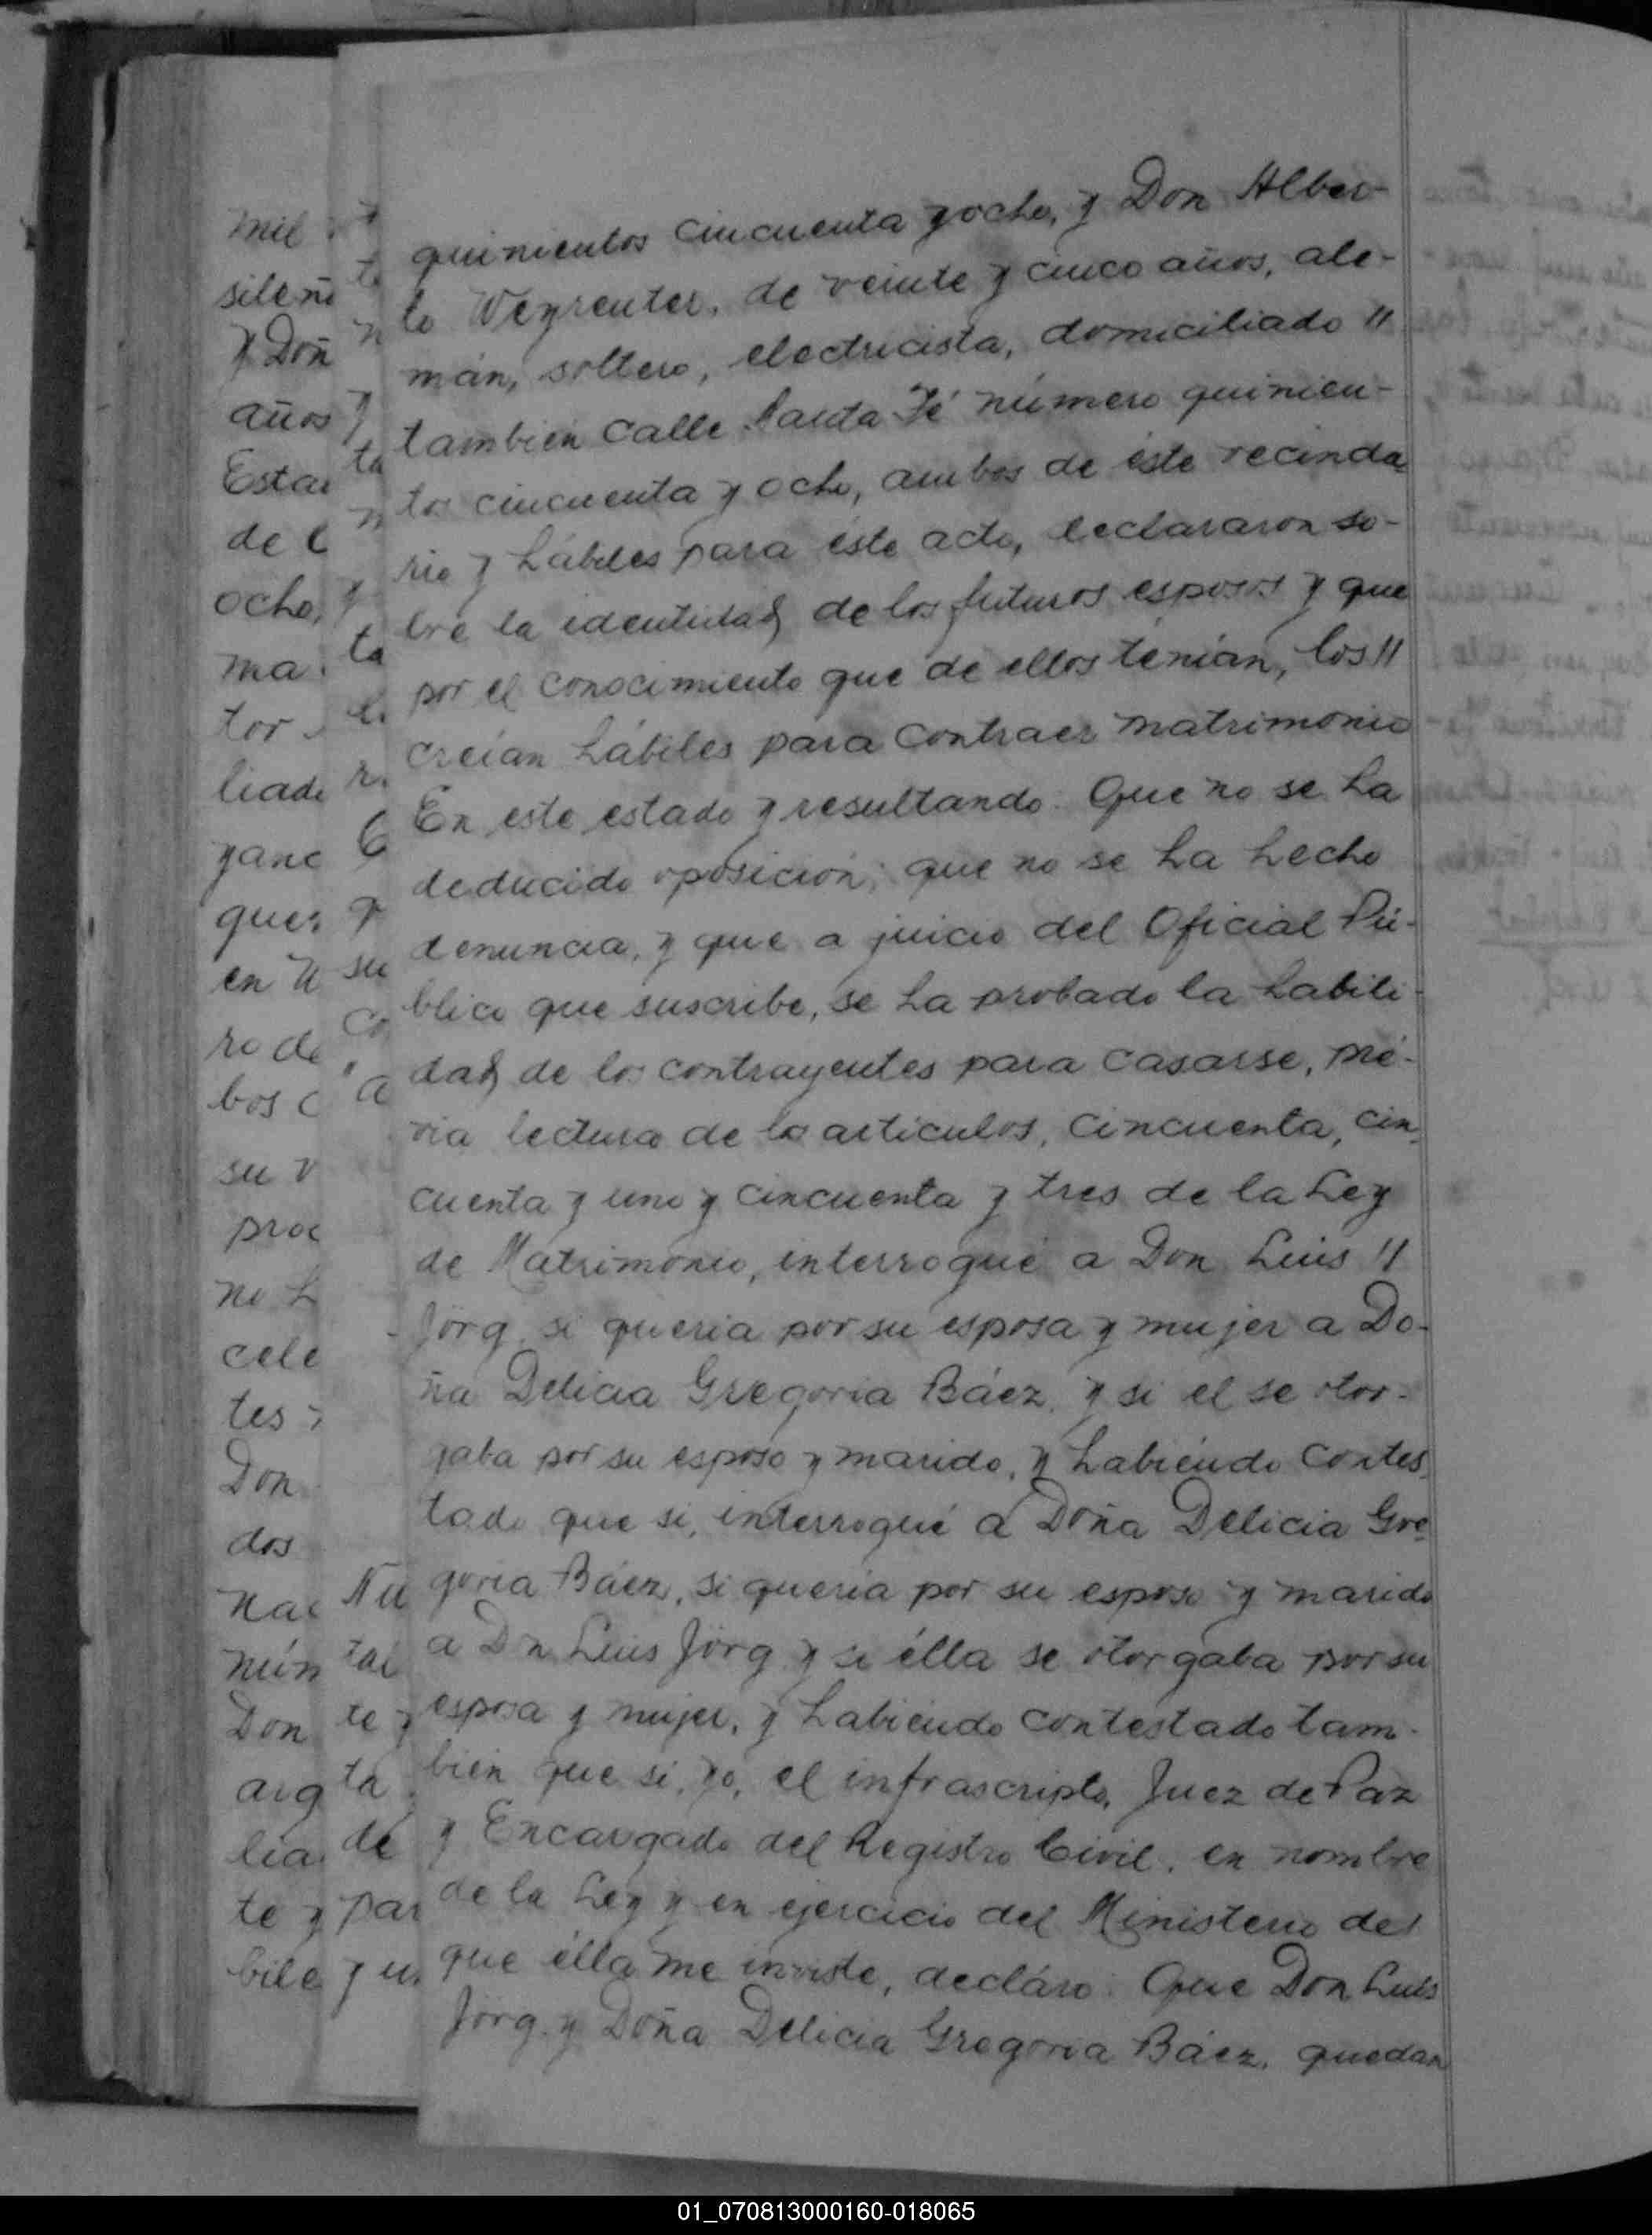 quinientos cincuenta y ocho, y Don Alber-
to Weyreuter, de veinte y cinco años, ale-
mán, soltero, electricista, domiciliado "
también calle Santa Fé número quinien-
tos cincuenta y ocho, ambos de éste vecinda
rio y hábiles para éste acto, declararon so-
bre la identidad de los futuros esposos y que
por el conocimiento que de ellos tenían, los "
creían hábiles para contraer matrimonio
En este estado y resultando: Que no se ha
deducido oposición; que no se ha hecho
denuncia, y que a juicio del Oficial Pú-
blico que suscribe, se ha probado la habili-
dad de los contrayentes para casarse, pré-
via lectura de los artículos, cincuenta, cin
cuenta y uno y cincuenta y tres de la Ley
de Matrimonio, interrogué a Don Luis "
Jörg, si quería por su esposa y mujer a Do-
ña Delicia Gregoria Báez, y si el se otor-
gaba por su esposo y marido, y habiéndo contes
tado que si, interrogué a Doña Delicia Gre
goria Báez, si quería por su esposo y marido
a Dn Luis Jörg y si élla se otorgaba por su
esposa y mujer, y habiéndo contestado tam-
bién que si, yo, el infrascripto, Juez de Paz
y Encargado del Registro Civil, en nombre
de la Ley y en ejercicio del Ministerio de
que élla me inviste, decláro: Que Don Luis
Jörg y Doña Delicia Gregoria Báez, quedan
mil
sileñ
y Doñ
años
Estad
de
ocho,
ma
tor
liado
yane
ques
en
ro de
bos
su
proc
no
cele
tes
Don
dos
nac
núm
Don
arg
lia
te y
bile
Nu
ta
de
par
y u
01_070813000160-018065